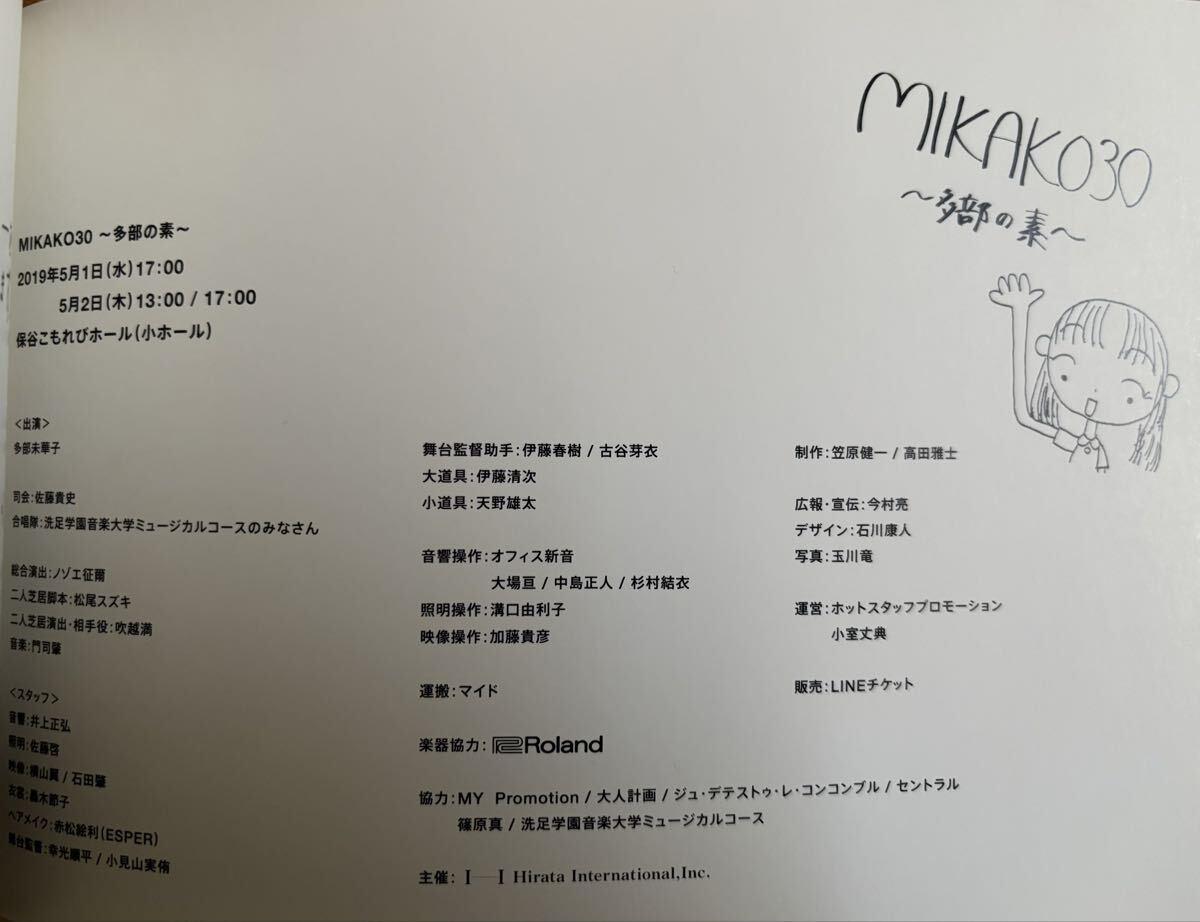 MIKAKO30
～多部の素～
MIKAKO30 ～多部の素～
2019年5月1日(水)17:00
5月2日(木)13:00 / 17:00
保谷こもれびホール(小ホール)
＜出演＞
多部未華子
司会:佐藤貴史
合唱隊:洗足学園音楽大学ミュージカルコースのみなさん
総合演出:ノゾエ征爾
二人芝居脚本:松尾スズキ
二人芝居演出・相手役:吹越満
音楽:門司肇
＜スタッフ＞
音響:井上正弘
照明:佐藤啓
映像:横山翼 / 石田肇
衣裳:轟木節子
ヘアメイク:赤松絵利(ESPER)
舞台監督:幸光順平 / 小見山実侑
舞台監督助手:伊藤春樹 / 古谷芽衣
大道具:伊藤清次
小道具:天野雄太
音響操作:オフィス新音
大場亘 / 中島正人 / 杉村結衣
照明操作:溝口由利子
映像操作:加藤貴彦
運搬:マイド
楽器協力: Roland
協力:MY Promotion / 大人計画 / ジュ・デテストゥ・レ・コンコンブル / セントラル
篠原真 / 洗足学園音楽大学ミュージカルコース
主催: I—I Hirata International,Inc.
制作:笠原健一 / 高田雅士
広報・宣伝:今村亮
デザイン:石川康人
写真:玉川竜
運営:ホットスタッフプロモーション
小室丈典
販売:LINEチケット